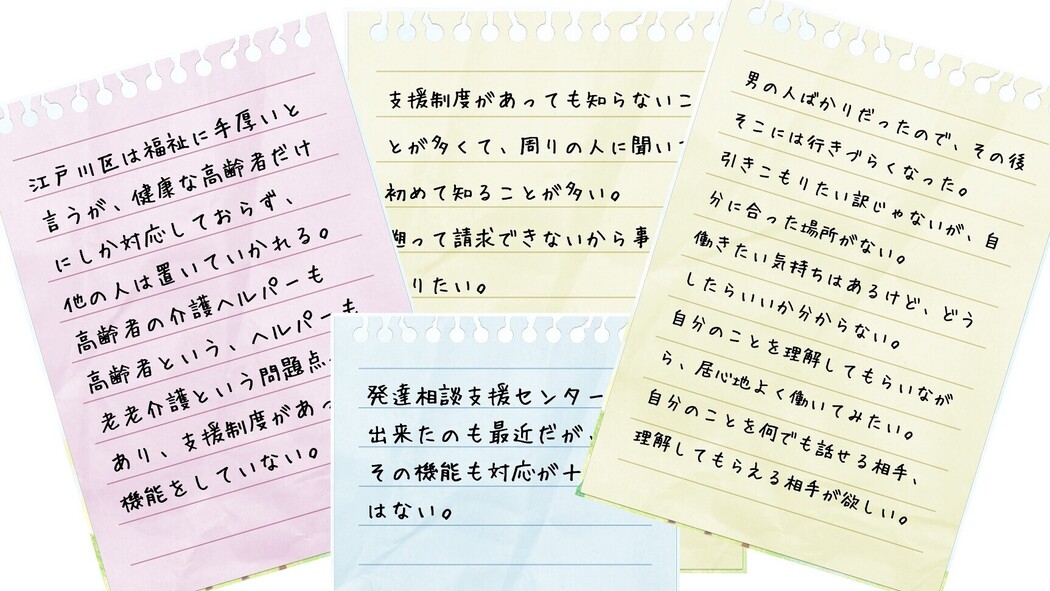 江戸川区は福祉に手厚いと
言うが、健康な高齢者だけ
にしか対応しておらず、
他の人は置いていかれる。
高齢者の介護ヘルパーも
高齢者という、ヘルパーも
老老介護という問題点
あり、支援制度があっ
機能をしていない。
支援制度があっても知らないこ
とが多くて、周りの人に聞い
初めて知ることが多い。
遡って請求できないから事
りたい。
発達相談支援センター
出来たのも最近だが、
その機能も対応が十
はない。
男の人ばかりだったので、その後
そこには行きづらくなった。
引きこもりたい訳じゃないが、自
分に合った場所がない。
働きたい気持ちはあるけど、どう
したらいいか分からない。
自分のことを理解してもらいなが
ら、居心地よく働いてみたい。
自分のことを何でも話せる相手、
理解してもらえる相手が欲しい。